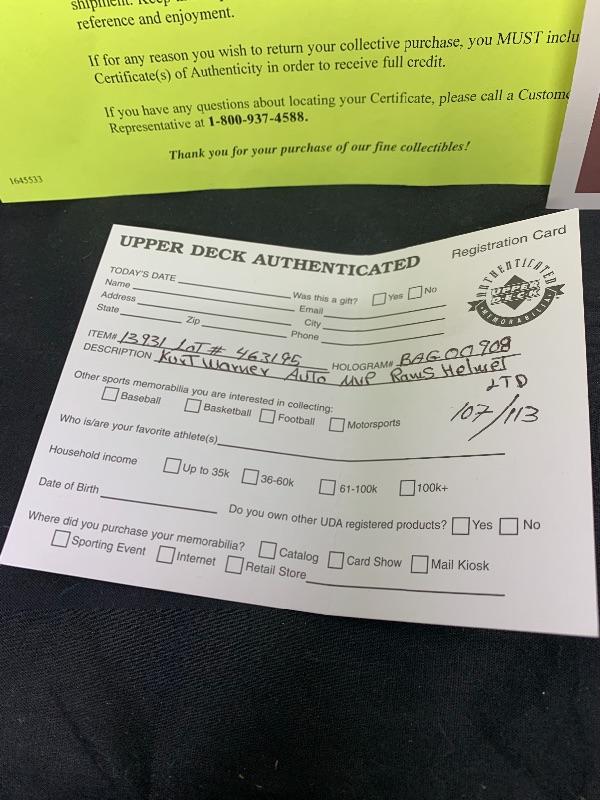 reference and enjoyment.
If for any reason you wish to return your collective purchase, you MUST inclu
Certificate(s) of Authenticity in order to receive full credit.
If you have any questions about locating your Certificate, please call a Custome
Representative at 1-800-937-4588.
Thank you for your purchase of our fine collectibles!
1645533
UPPER DECK AUTHENTICATED
Registration Card
AUTHENTICATED
UPPER DECK
MEMORABILIA
TODAY'S DATE
Was this a gift? Yes No
Name
Email
Address
City
State Zip
Phone
ITEM# 13931 LOT # 463195 HOLOGRAM# BAG00908
DESCRIPTION Kurt Warner AUTO MVP Rams Helmet
LTD
107/113
Other sports memorabilia you are interested in collecting:
Baseball Basketball Football Motorsports
Who is/are your favorite athlete(s)
Household income Up to 35k 36-60k 61-100k 100k+
Date of Birth
Do you own other UDA registered products? Yes No
Where did you purchase your memorabilia? Catalog Card Show Mail Kiosk
Sporting Event Internet Retail Store